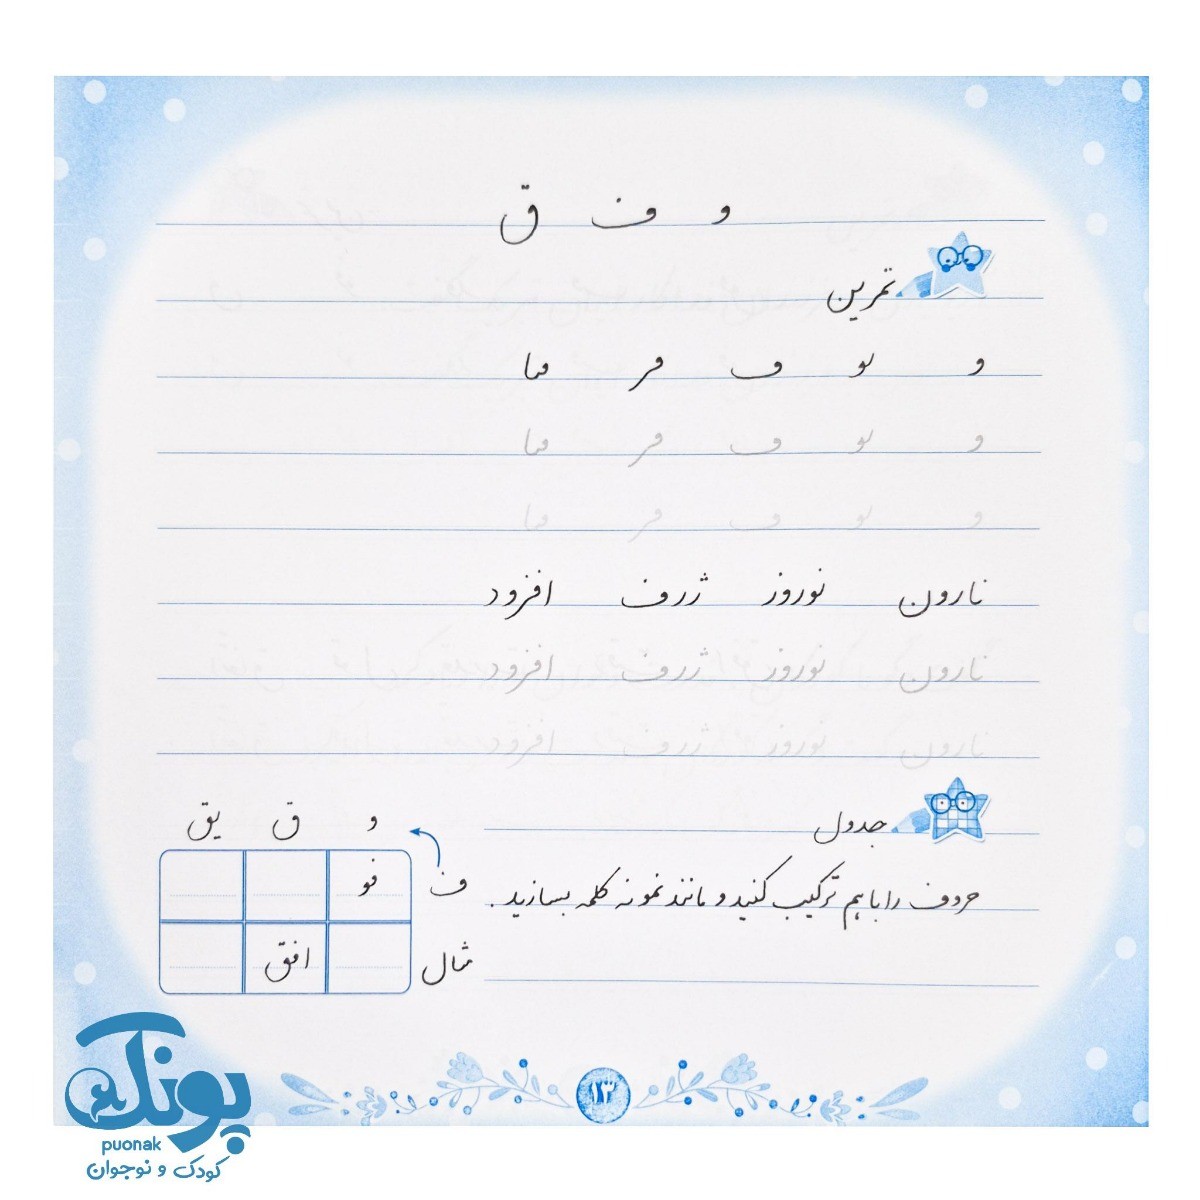 و ف ق
تمرین
و نو ف فر فا
و نو ف فر فا
و نو ف فر فا
نارون نوروز ژرف افزود
نارون نوروز ژرف افزود
نارون نوروز ژرف افزود
جدول
حروف را با هم ترکیب کنید و مانند نمونه کلمه بسازید .
و ق یق
ف فو
مثال افق
۱۳
پونک
puonak
کودک و نوجوان